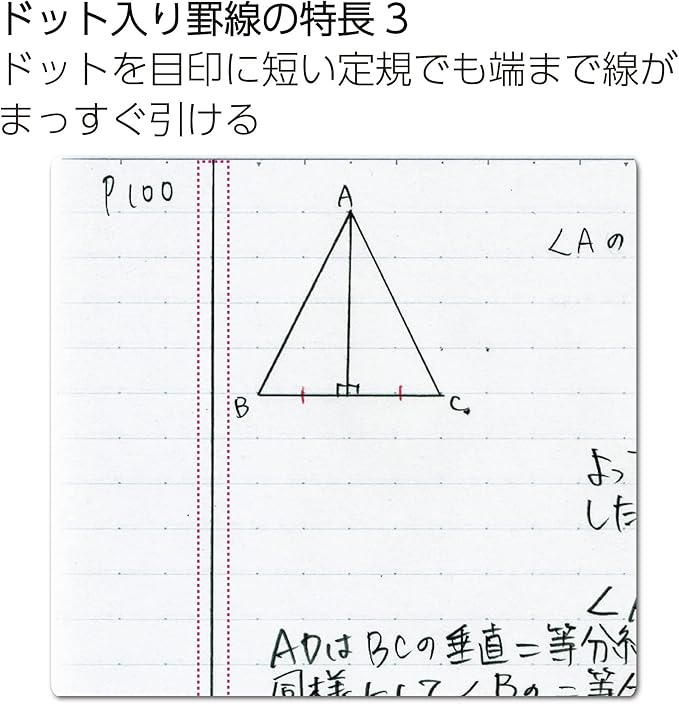 ドット入り罫線の特長3
ドットを目印に短い定規でも端まで線が
まっすぐ引ける
P100
A
∠Aの
B
C
よっ
した
∠A
ADはBCの垂直二等分
同様にして∠Bの二等分